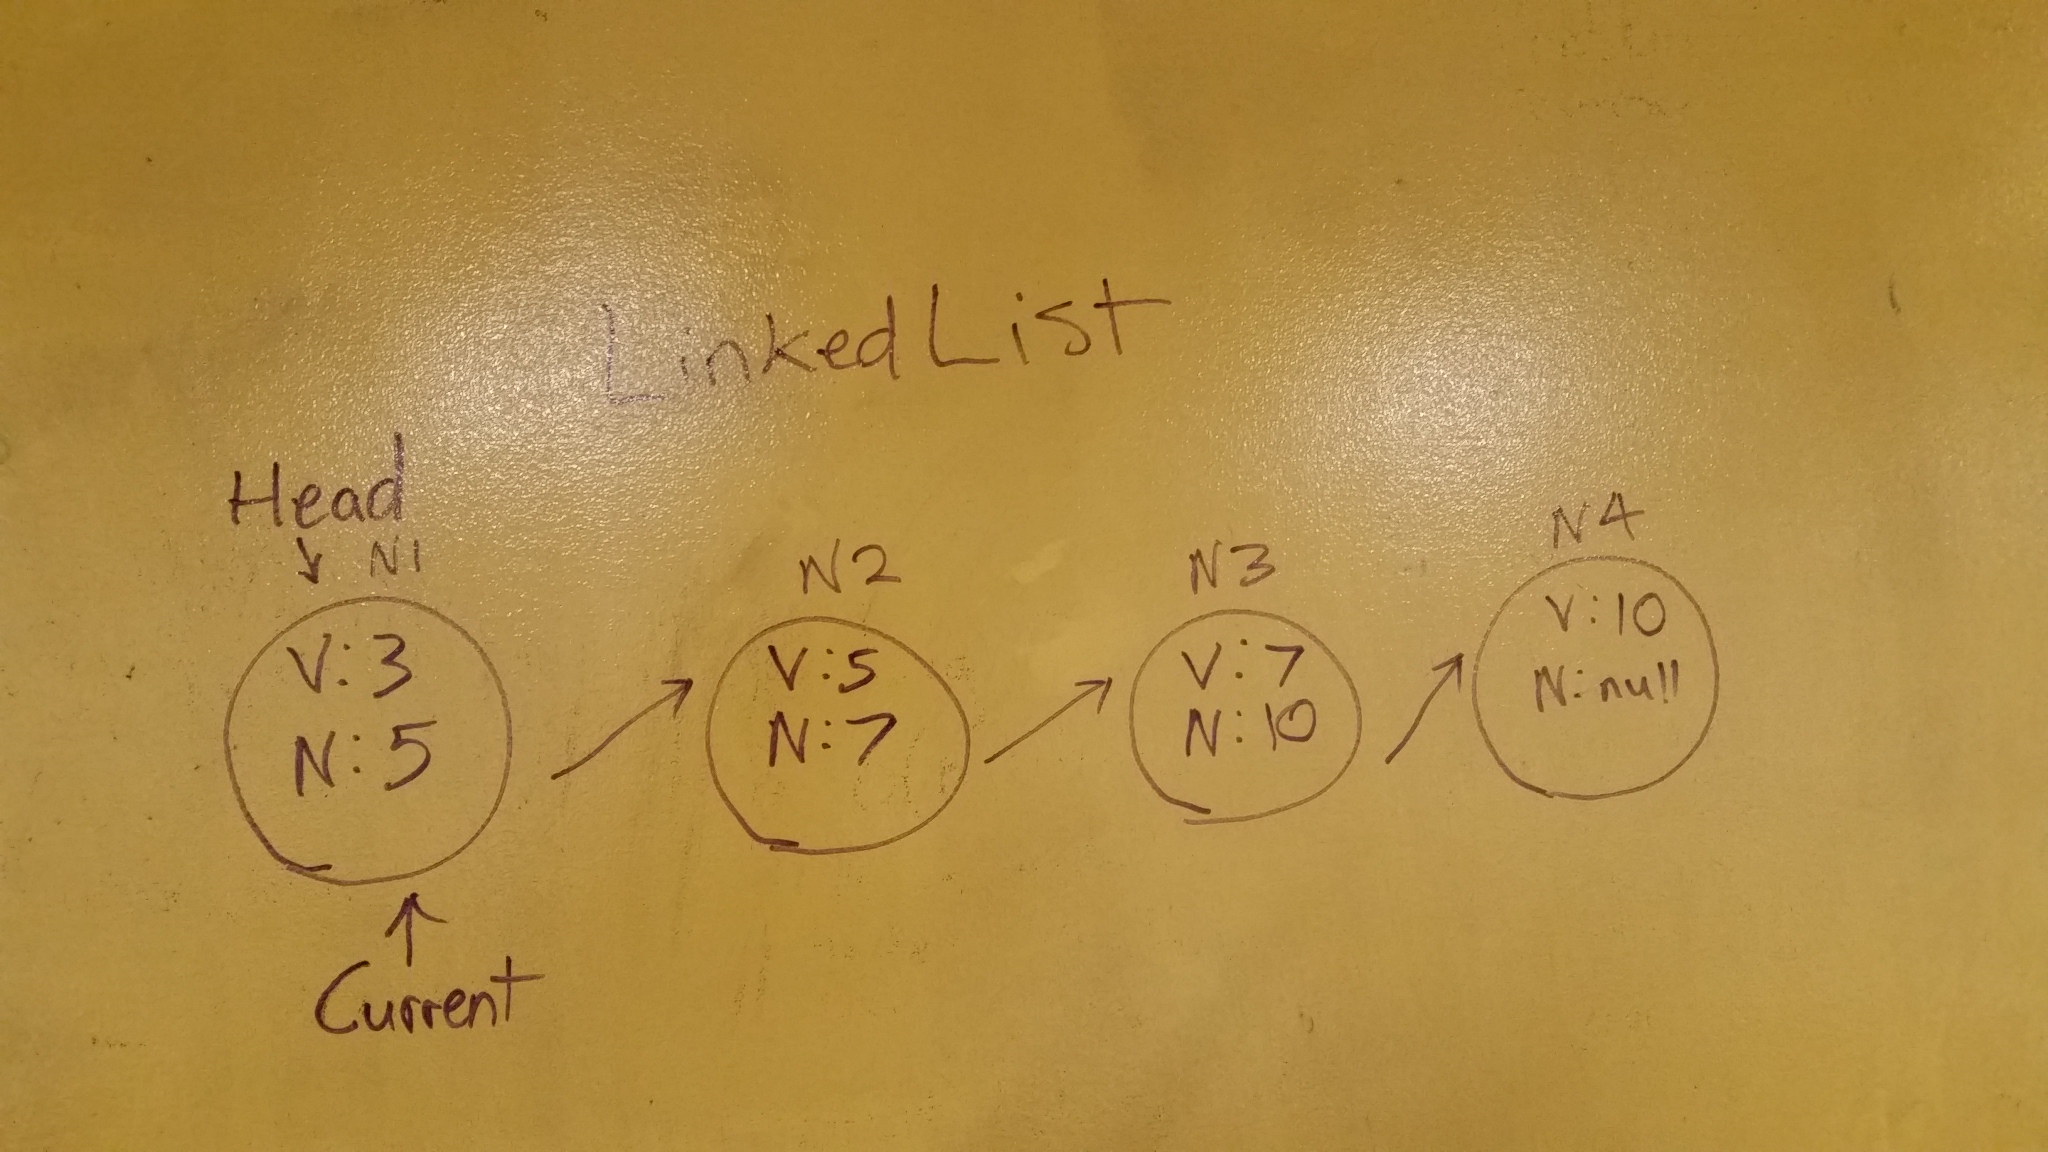 Linked List
Head
N1
V:3
N:5
Current
N2
V:5
N:7
N3
V:7
N:10
N4
V:10
N:null